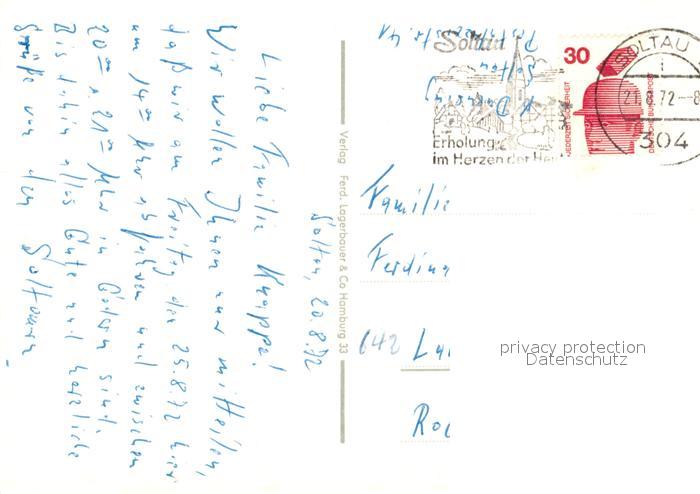 Soltau, 20.8.72
Liebe Familie Knappe!
Wir wollen Ihnen nur mitteilen,
daß wir am Freitag den 25.8.72 hier
um 14°° Uhr abfahren und zwischen
20°° u. 21°° Uhr in sind.
Bis dahin alles Gute und herzliche
Grüße von den Soltauern
Verlag Ferd. Lagerbauer & Co Hamburg 33
Soltau
Soltau
Erholung
im Herzen der Hei
30
JEDERZEIT SICHERHEIT
DEUTSCHE BUNDESPOST
SOLTAU
21. 8. 72 - 8
304
Familie
Ferdina
642 Lu
Ro
privacy protection
Datenschutz